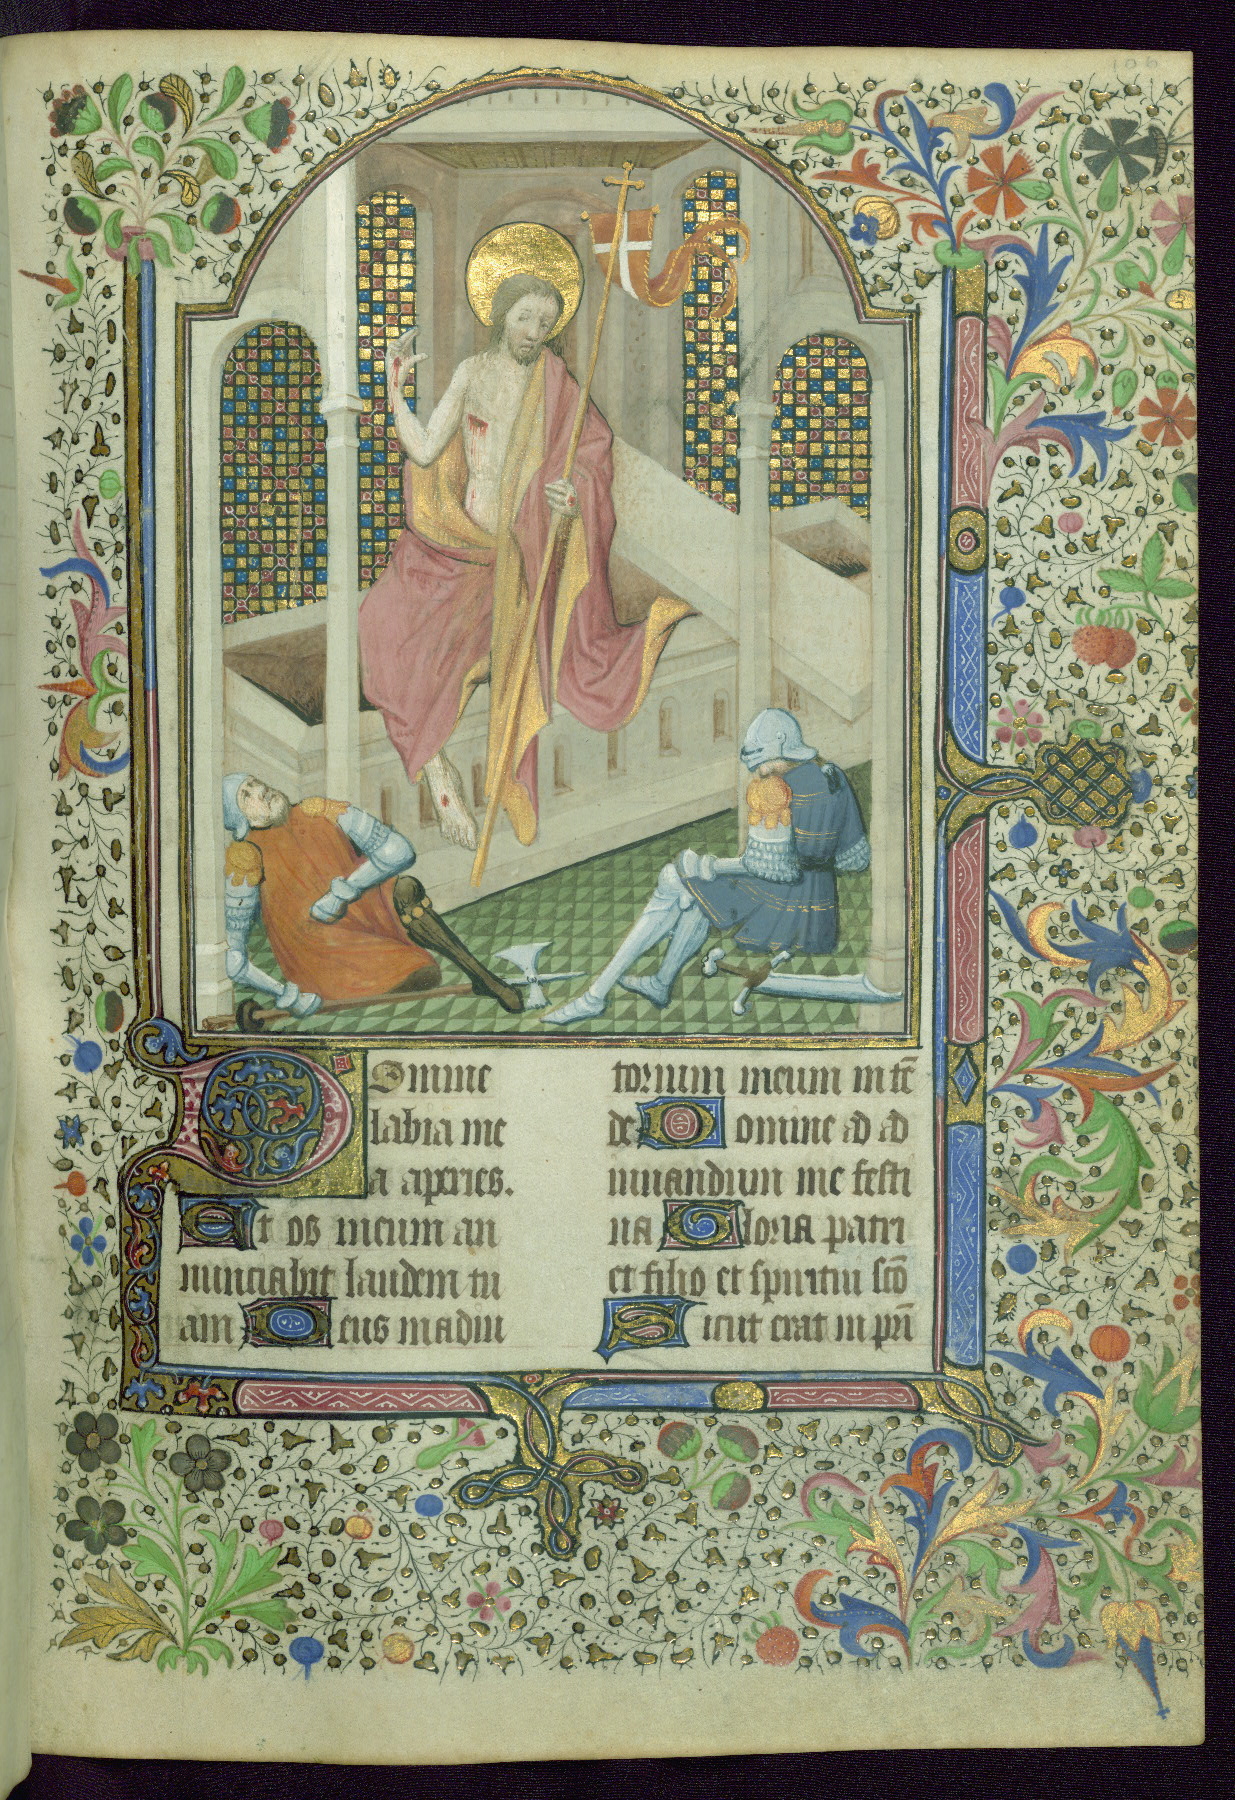 106
Domine
labia me
a aperies.
Et os meum an
nunciabit laudem tu
am Deus in adiu
torium meum intē
de Domine ad ad
iuuandum me festi
na Gloria patri
et filio et spiritui scō
Sicut erat in prī